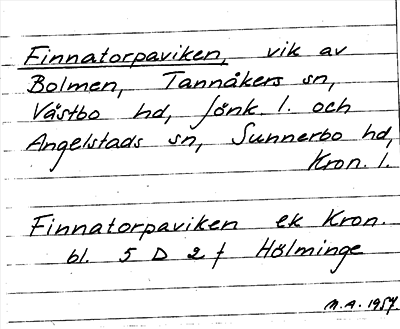 Finnatorpaviken, vik av
Bolmen, Tannåkers sn,
Västbo hd, Jönk. l. och
Angelstads sn, Sunnerbo hd,
Kron. l.
Finnatorpaviken ek Kron.
bl. 5 D 2 f Hölminge
M.A. 1957.